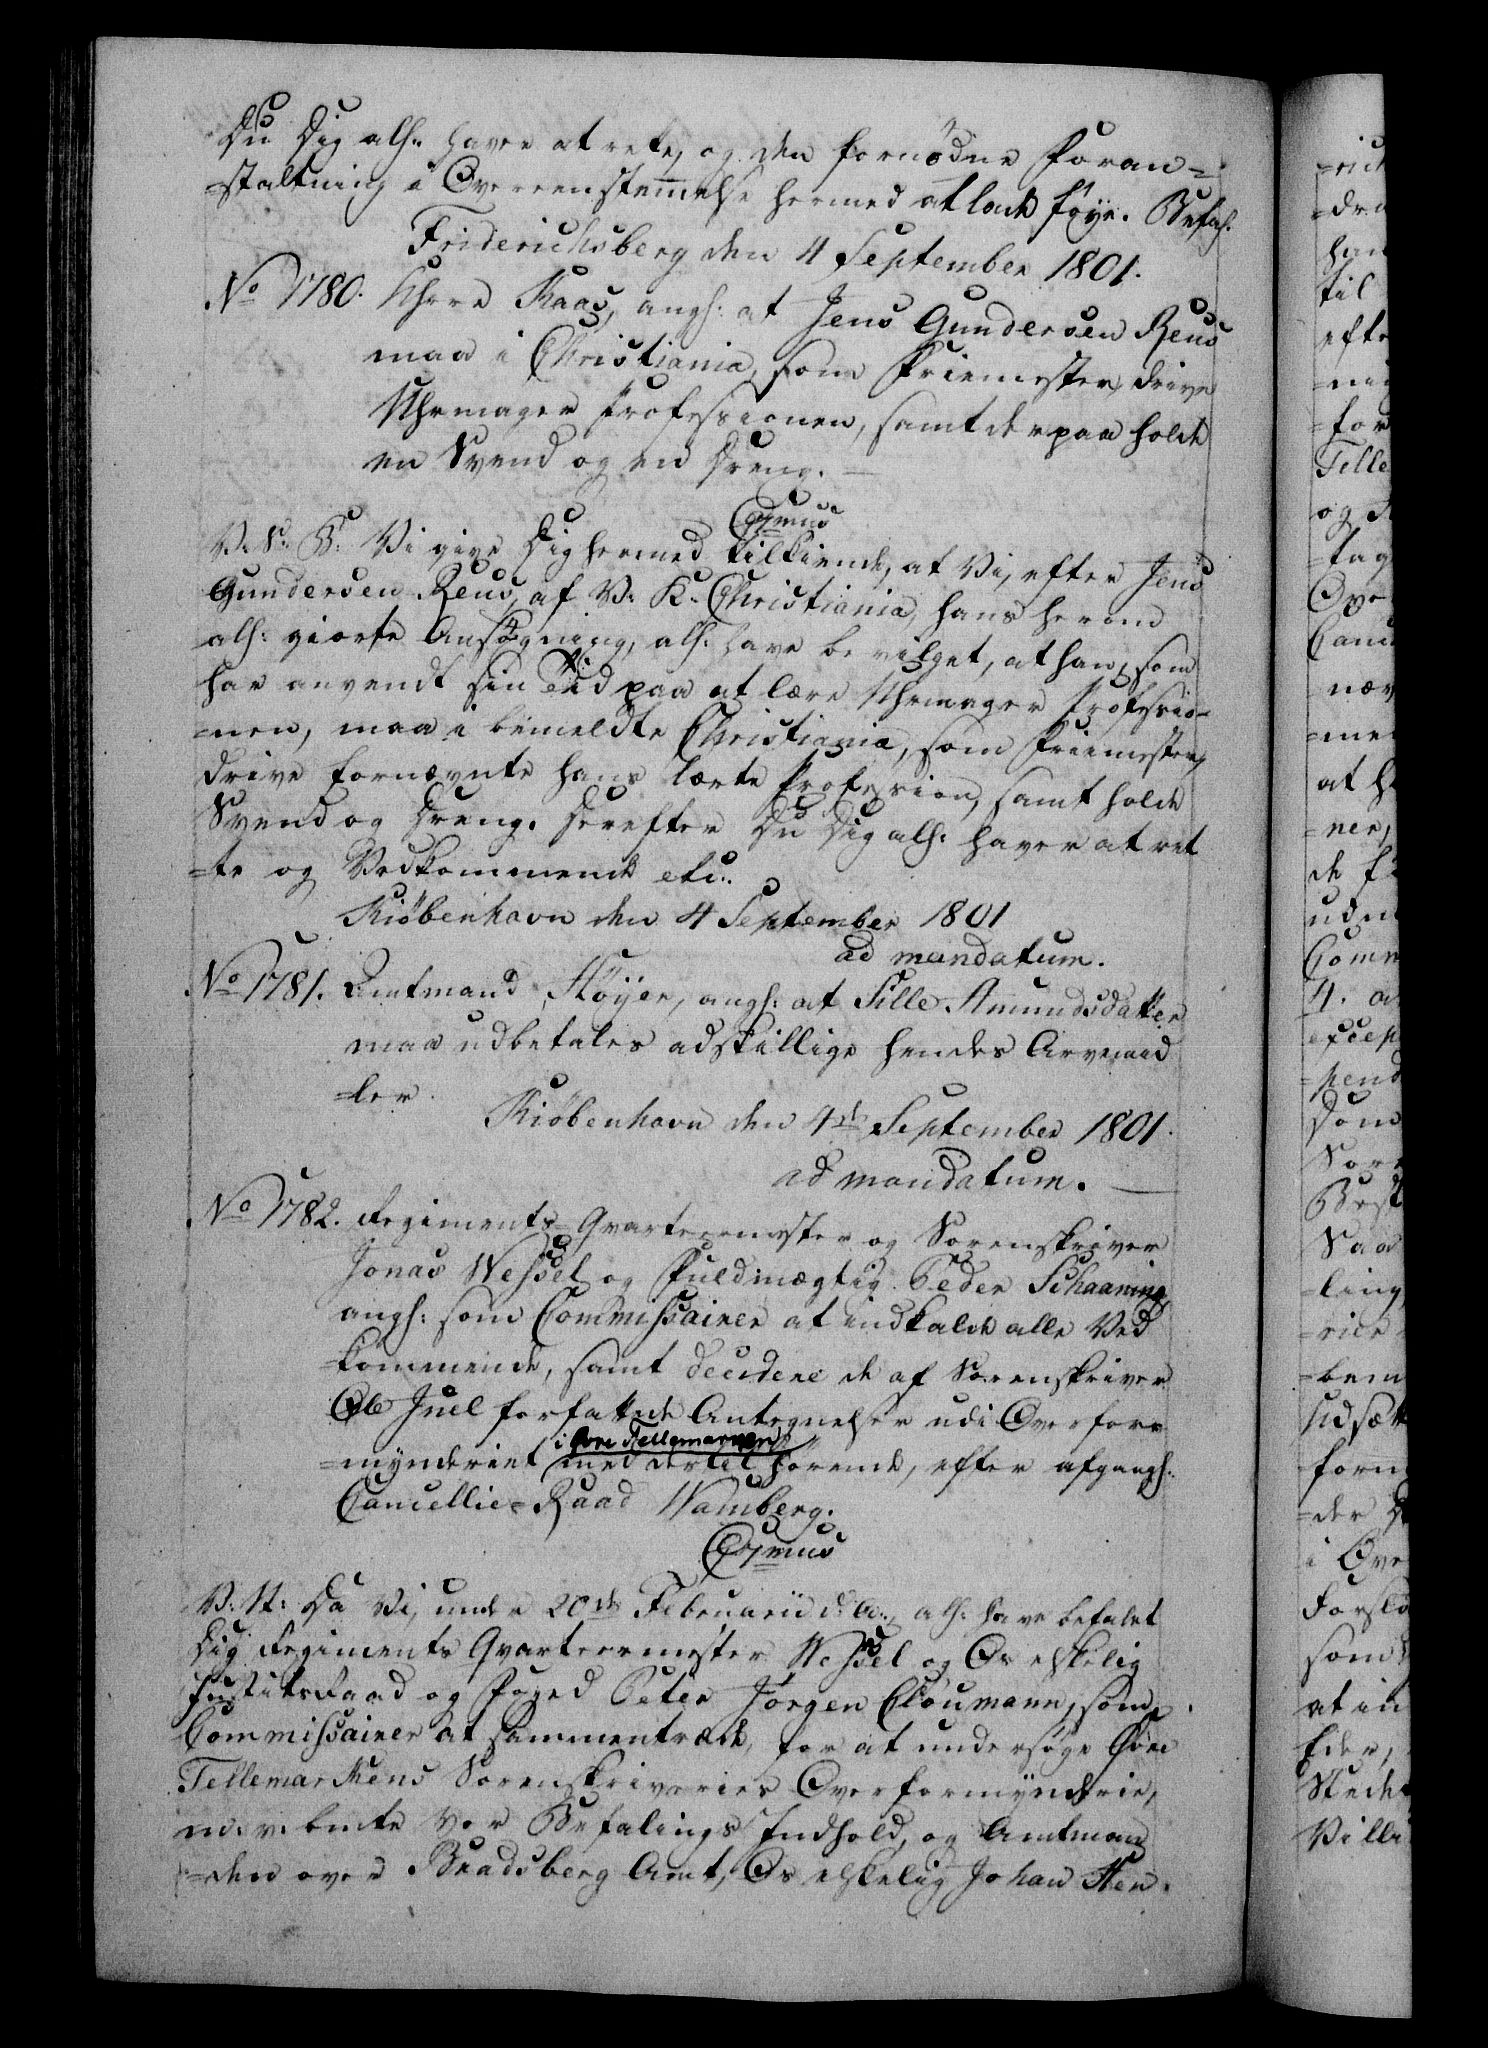 Du Dig alh: haver at rette, og den fornödne Foran-
-staltning i Overeenstemmelse hermed at lade föye. Befah.
Friderichsberg den 4 September 1801.
No 1780. Hhrr Kaas, angh: at Jens Gundersen Reus
maa i Christiania, som Friemester, drive
Uhrmager Professionen, samt derpaa holde
en Svend og en Dreng.
V: S: B: Vi give Dig hermed tilkiende, at Vi, efter Jens
Gundersen Reus, af V: K: Christiania, hans herom
alh: giorte Ansögning, alh: have bevilget, at han, som
har anvendt sin Tid paa at lære Uhrmager Professio-
-nen, maa i bemeldte Christiania, som Friemester,
drive fornævnte hans lærte Profession, samt holde
Svend og Dreng. Derefter Du Dig alh: haver at ret
-te og Vedkommende etc:
Kiöbenhavn den 4 September 1801
ad mandatum.
No 1781. Amtmand Höyer, angh: at Sille Amundsdatter
maa udbetales adskillige hendes Arvemid
-ler.
Kiöbenhavn den 4de September 1801.
ad mandatum.
No 1782. Regiments-Qvarteermester og Sorenskriver
Jonas Wessel og Fuldmægtig Peder Schaaning
angh: som Commissairer at indkalde alle Ved
-kommende, samt decidere de af Sorenskriver
Ole Juel forfattede Antegnelser udi Overfor-
i Övre Tellemarken
-mynderiet med dertil hörende, efter afgangh:
Cancellie-Raad Wamberg.
V: U: Da Vi, under 20de Februarii d: A:, alh: have befalet
Dig Regiments Qvarteermester Wessel og Os elskelig
Justitsraad og Foged Peter Jörgen Cloumann, som
Commissairer at sammentræde, for at undersöge Övre
Tellemarkens Sorenskriveries Overformynderie,
m: v: bmte Vor Befalings Indhold, og Amtman
-den over Bradsberg Amt, Os elskelig Johan Hen-